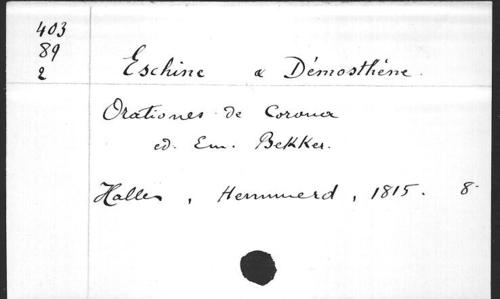 403
89
2
Eschine & Démosthène.
Orationes de Corona
ed. Em. Bekker.
Halle, Hemmerd, 1815. 8-